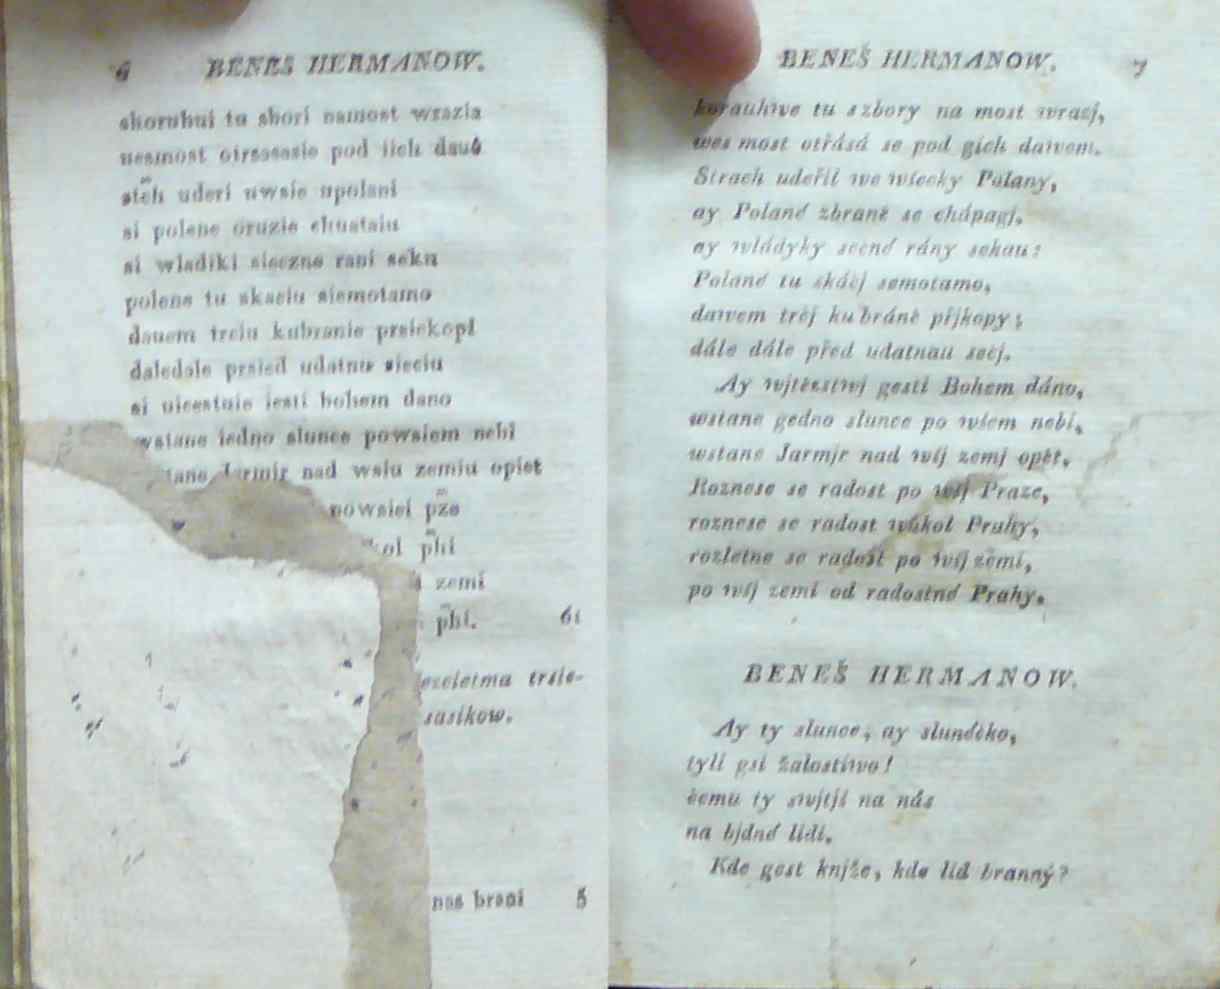 6 BENES HERMANOW.
skoruhui tu sbori namost wrazia
uesmost otrsasasie pod iich dau
stĕh uderi uwsie upolani
ai polene oruzie chustaiu
ai wladiki sieczne rani seku
polene tu skaciu siemotamo
dauem treiu kubranie prsiekopi
daledale prsied udatnu sieciu
ai uicestuie iesti bohem dano
wstane iedno slunce powsiem nebi
tane Jarmir nad wsiu zemiu opiet
powsiei pze
kol phi
zemi
phi. 61
ezeletma trsie-
sasikow.
nas brani 5
BENEŠ HERMANOW. 7
korauhwe tu s zbory na most wrazj,
wes most otřásá se pod gich dawem.
Strach udeřil we wšecky Polany,
ay Polané zbraně se chápagj,
ay wládyky sečné rány sekau:
Polané tu skáčj semotamo,
dawem třèj ku bráně přjkopy;
dále dále před udatnau sečj.
Ay wjtězstwj gesti Bohem dáno,
wstane gedno slunce po wšem nebi,
wstane Jarmjr nad wšj zemj opět.
Roznese se radost po wšj Praze,
roznese se radost wůkol Prahy,
rozletne se radost po wšj zemi,
po wšj zemi od radostné Prahy.
BENEŠ HERMANOW.
Ay ty slunce, ay slunéčko,
tyli gsi žalostiwo!
čemu ty swjtjš na nás
na bjdné lidi.
Kde gest knjže, kde lid branný?